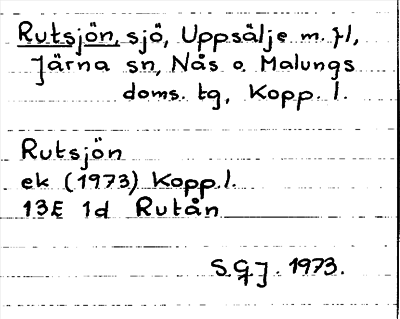 Rutsjön, sjö, Uppsälje m. fl,
Järna sn, Nås o. Malungs
doms. tg, Kopp. l.
Rutsjön
ek (1973) Kopp. l.
13E 1d Rutån
S.G.J. 1973.